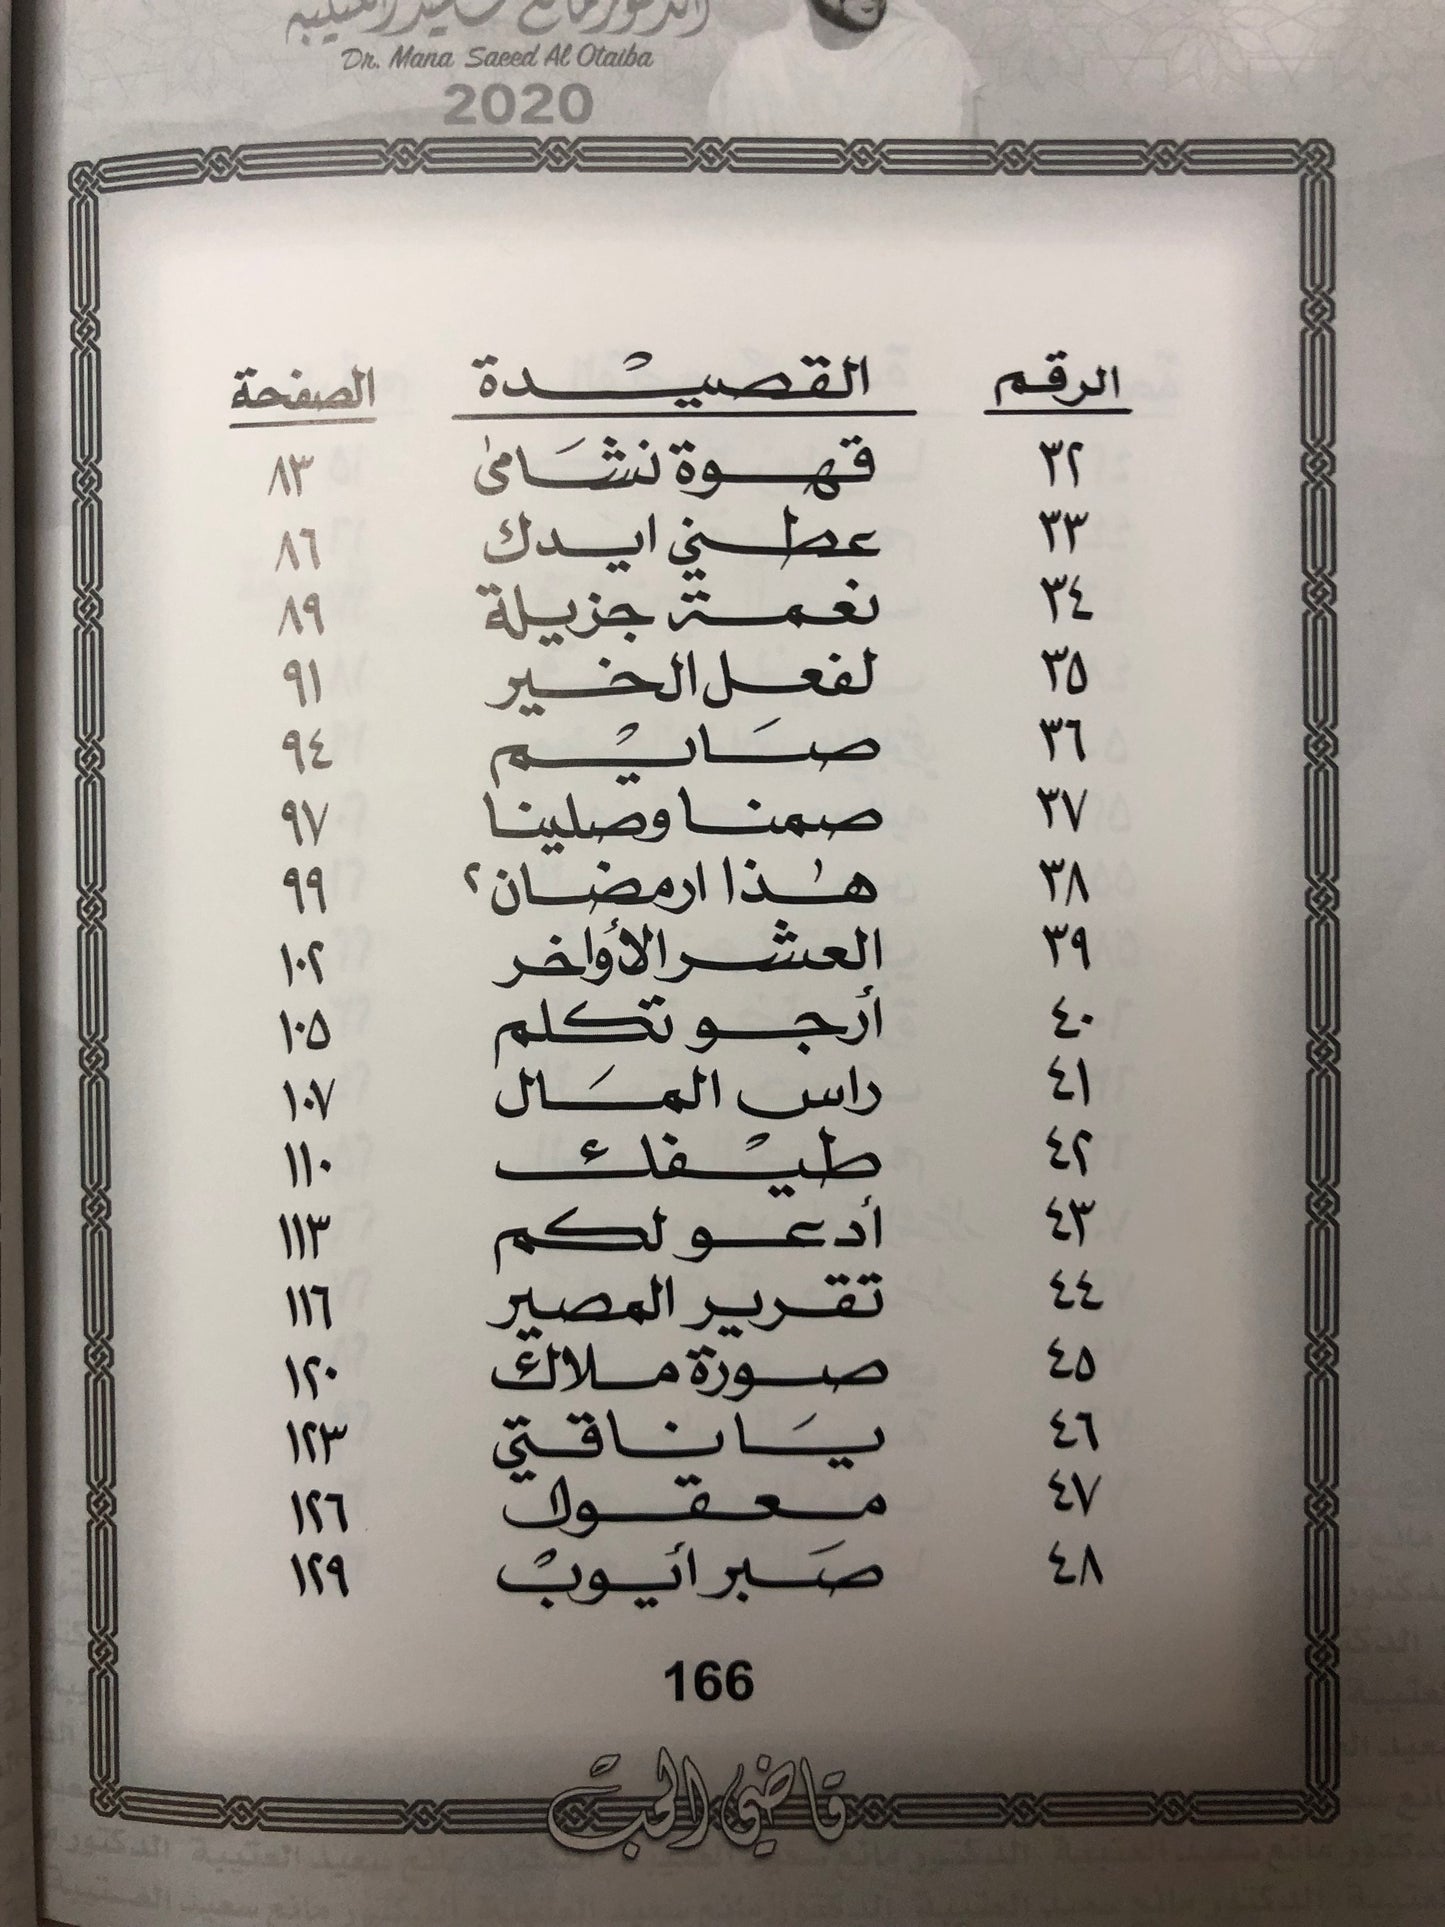 الدكتور مانع سعيد العتيبة
Dr. Mana Saeed Al Otaiba
2020
الرقم القصيدة الصفحة
٣٢ قهوة نشامى ٨٣
٣٣ عطني ايدك ٨٦
٣٤ نعمة جزيلة ٨٩
٣٥ لفعل الخير ٩١
٣٦ صايم ٩٤
٣٧ صمنا وصلينا ٩٧
٣٨ هذا ارمضان؟ ٩٩
٣٩ العشر الأواخر ١٠٢
٤٠ أرجو تكلم ١٠٥
٤١ راس المال ١٠٧
٤٢ طيفك ١١٠
٤٣ أدعو لكم ١١٣
٤٤ تقرير المصير ١١٦
٤٥ صورة ملاك ١٢٠
٤٦ يا ناقتي ١٢٣
٤٧ معقول ١٢٦
٤٨ صبر أيوب ١٢٩
166
قاضي الحب